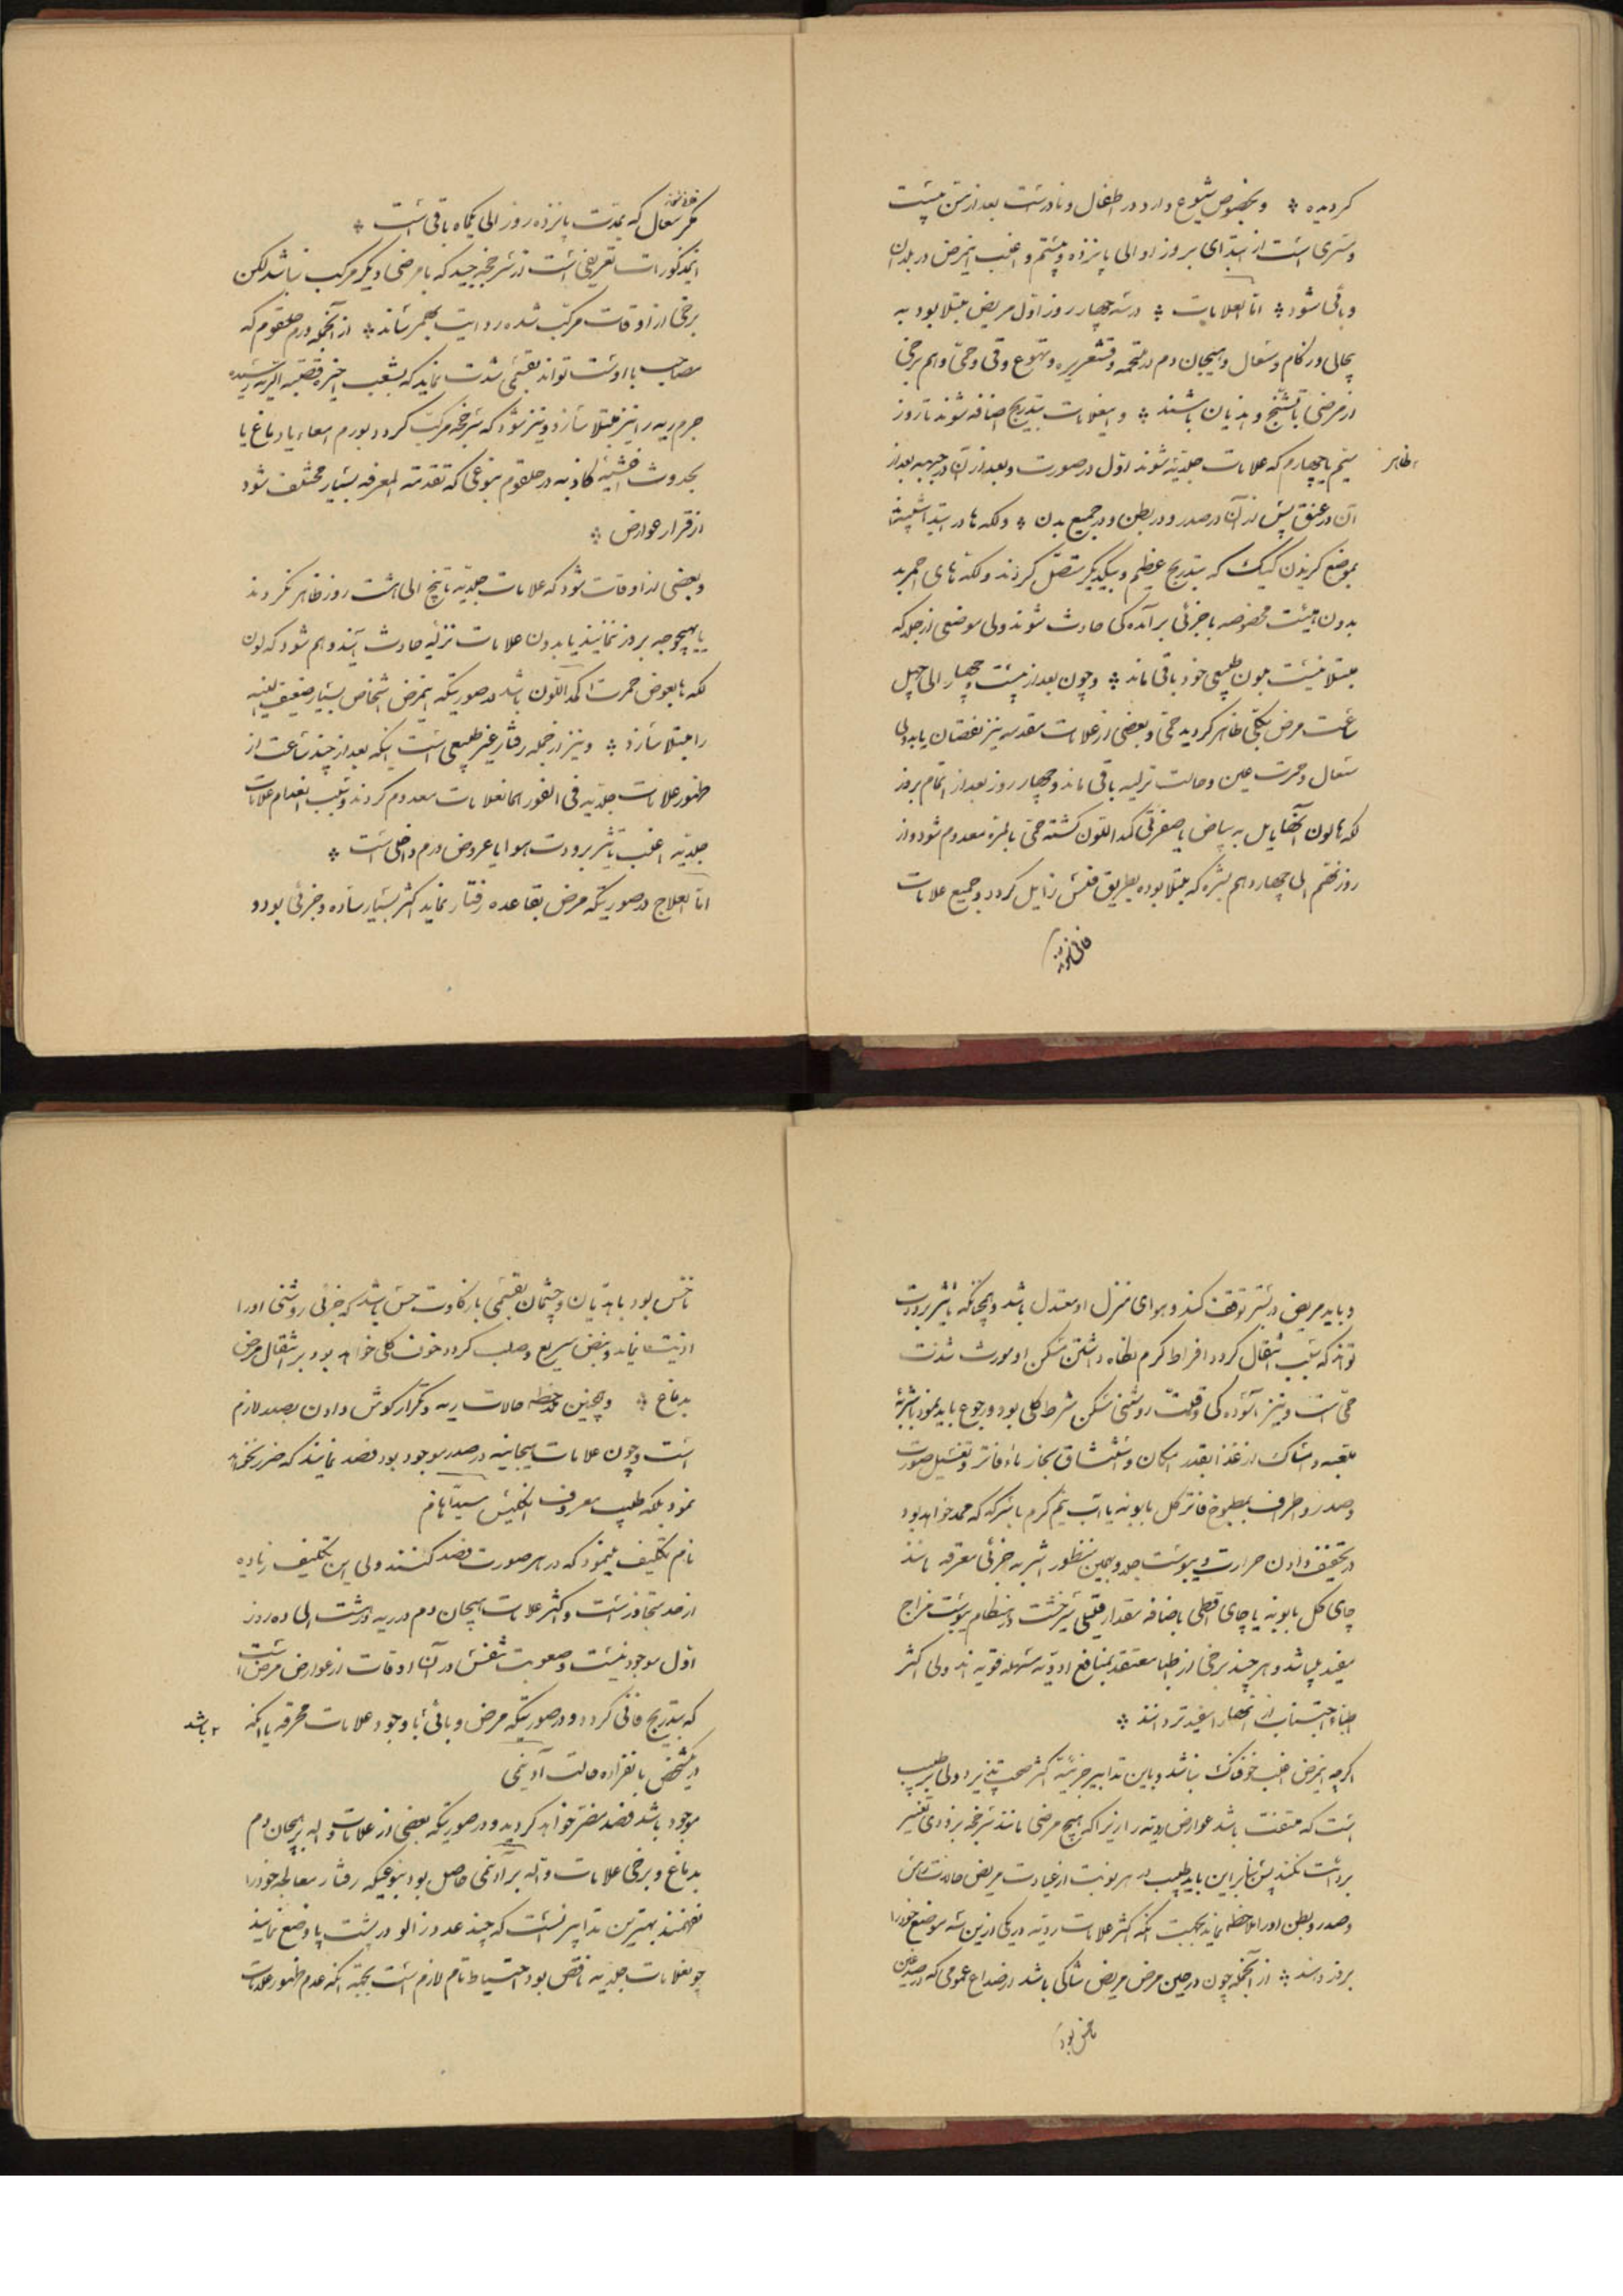 کردیده ؞ و بخصوص شیوع دارد در اطفال و نادرست بعد از سن بیست
و مسری است از ابتدای بروز او الی پانزده و بیستم و اغلب اینمرض در بلدان
وبائی شود ؞ اما العلامات ؞ در سه چهار روز اول مریض مبتلا بود به
بحالی و زکام و سعال و هیجان دم در ملتحمه و قشعریره و تهوع و قی و حمی و هم برخی
از مرضی با تشنج و هذیان باشند ؞ و اینعلامات بتدریج اضافه شوند تا روز
سیم یا چهارم که علامات جلدیه شوند اول در صورت و بعد از آن در جبهه بعد از
ظاهر
آن در عنق پس از آن در صدر و در بطن و در جمیع بدن ؞ و لکه ها در ابتدا شبیه
بموضع گزیدن کیک که بتدریج عظیم و بیکدیگر متصل گردند و لکه های احمر بد
بدون هیئت مخصوصه با جزئی برآمده کی حادث شوند ولی موضعی از جلد که
مبتلا نیست بلون طبیعی خود باقی ماند ؞ و چون بعد از بیست و چهار الی چهل
ساعت مرض بکلی ظاهر کردید حمی و بعضی از علامات مقدمه نیز نقصان یابد ولی
سعال و حمرت عین و حالت نزلیه باقی ماند و چهار روز بعد از اتمام بروز
لکه ها لون آنها مایل به بیاض یا صفرتی کمد اللون کشته حمی بالمره معدوم شود و از
روز نهم الی چهاردهم بشره که مبتلا بوده بطریق فلس زایل کردد و جمیع علامات
فانی شوند
مکر سعال که بمدت پانزده روز الی یکماه باقی است ؞
اینمذکورات تعریفی است از سرخجه جید که با مرضی دیکر مرکب نباشد لکن
برخی از اوقات مرکب شده ردائت بهمرساند ؞ از آنجمله ورم حلقوم که
مصاحب با اوست تواند بقسمی شدت نماید که بشعب اخیره قصبه الریه رسیده
جرم ریه را نیز مبتلا سازد و نیز شود که سرخجه مرکب کردد بورم امعاء یا دماغ یا
بحدوث اغشیه کاذبه در حلقوم بنوعی که تقدمه المعرفه بسیار مختلف شود
از قرار عوارض ؞
و بعضی از اوقات شود که علامات جلدیه تا پنج الی هشت روز ظاهر نکردند
یا بهیچوجه بروز ننمایند یا بدون علامات نزلیه حادث آیند و هم شود که لون
لکه ها بعوض حمرت کمد اللون باشد در صورتیکه اینمرض اشخاص بسیار ضعیف البنیه
را مبتلا سازد ؞ و نیز از جمله رفتار غیر طبیعی است اینکه بعد از چند ساعت از
ظهور علامات جلدیه فی الفور آنعلامات معدوم کردند و سبب انعدام علامات
جلدیه اغلب تاثیر برودت هوا یا عروض ورم داخلی است ؞
اما العلاج در صورتیکه مرض بقاعده رفتار نماید اکثر بسیار ساده و جزئی بود و
و باید مریض در بستر توقف کند و هوای منزل او معتدل باشد و همچنانکه تاثیر برودت
تواند که سبب انتقال کردد افراط کرم نگاه داشتن مسکن او مورث شدت
حمی است و نیز آسوده کی و قلت روشنی مسکن شرط کلی بود و رجوع باید نمود باشربه
ملعبه و امساک از غذا بقدر امکان و استنشاق بخار ماء فاتر و تغسیل صورت
و صدر و اطراف بمطبوخ فاتر کل بابونه یا آب نیم گرم با سرکه که ممد خواهد بود
در تخفیف دادن حرارت و یبوست جلد و بهمین منظور اشربه جزئی معرقه مانند
چای کل بابونه یا چای اقطی باضافه مقدار قلیلی شیرخشت در هنکام یبوست مزاج
مفید میباشد و هر چند برخی از اطبا معتقد بمنافع ادویه مسهله قویه اند ولی اکثر
اطبا اجتناب از آنها را مفیدتر دانند ؞
اکرچه اینمرض اغلب خوفناک نباشد و باین تدابیر جزئیه اکثر صحت پذیرد ولی بر طبیب
است که ملتفت باشد عوارض ردیه را زیرا که هیچ مرضی مانند سرخجه بزودی تغییر
برداشت نکند پس بنابراین باید طبیب در هر نوبت از عیادت مریض حالت راس
و صدر و بطن او را ملاحظه نماید بجهت آنکه اکثر علامات ردیه در یکی از این سه موضع خود را
بروز دهند ؞ از آنجمله چون در حین مرض مریض شاکی باشد از صداع عمومی که در صدغین
ناخس بود
ناخس بود یا هذیان و چشمان بقسمی با ذکاوت حس باشد که جزئی روشنی او را
اذیت نماید و نبض سریع و صلب کردد خوف کلی خواهد بود بر انتقال مرض
بدماغ ؞ و همچنین ملاحظه حالات ریه و تکرار کوش دادن بصدر لازم
است و چون علامات هیجانیه در صدر موجود بود فصد نمایند که ضرر نخواهد
نمود بلکه طبیب معروف انکلیس سیدنهام
نام تکلیف مینمود که در هر صورت فصد کنند ولی این تکلیف زیاده
از حد متجاوز است و اکثر علامات هیجان دم در ریه در هشت الی ده روز
اول موجود نیست و صعوبت تنفس در آن اوقات از عوارض مرض است
که بتدریج فانی کردد و در صورتیکه مرض وبائی با وجود علامات محرقه یا آنکه
باشد
در شخص بانفراده حالت آدینمی
موجود باشد فصد مضر خواهد کردید و در صورتیکه بعضی از علامات داله بر هیجان دم
بدماغ و برخی علامات داله بر آدینمی حاصل بود بنوعیکه رفتار معالجه خود را
نفهمند بهترین تدابیر آنست که چند عدد زالو در پشت پا وضع نمایند
چون علامات جلدیه ناقص بود احتیاط تام لازم است بجهت آنکه عدم ظهور علامات